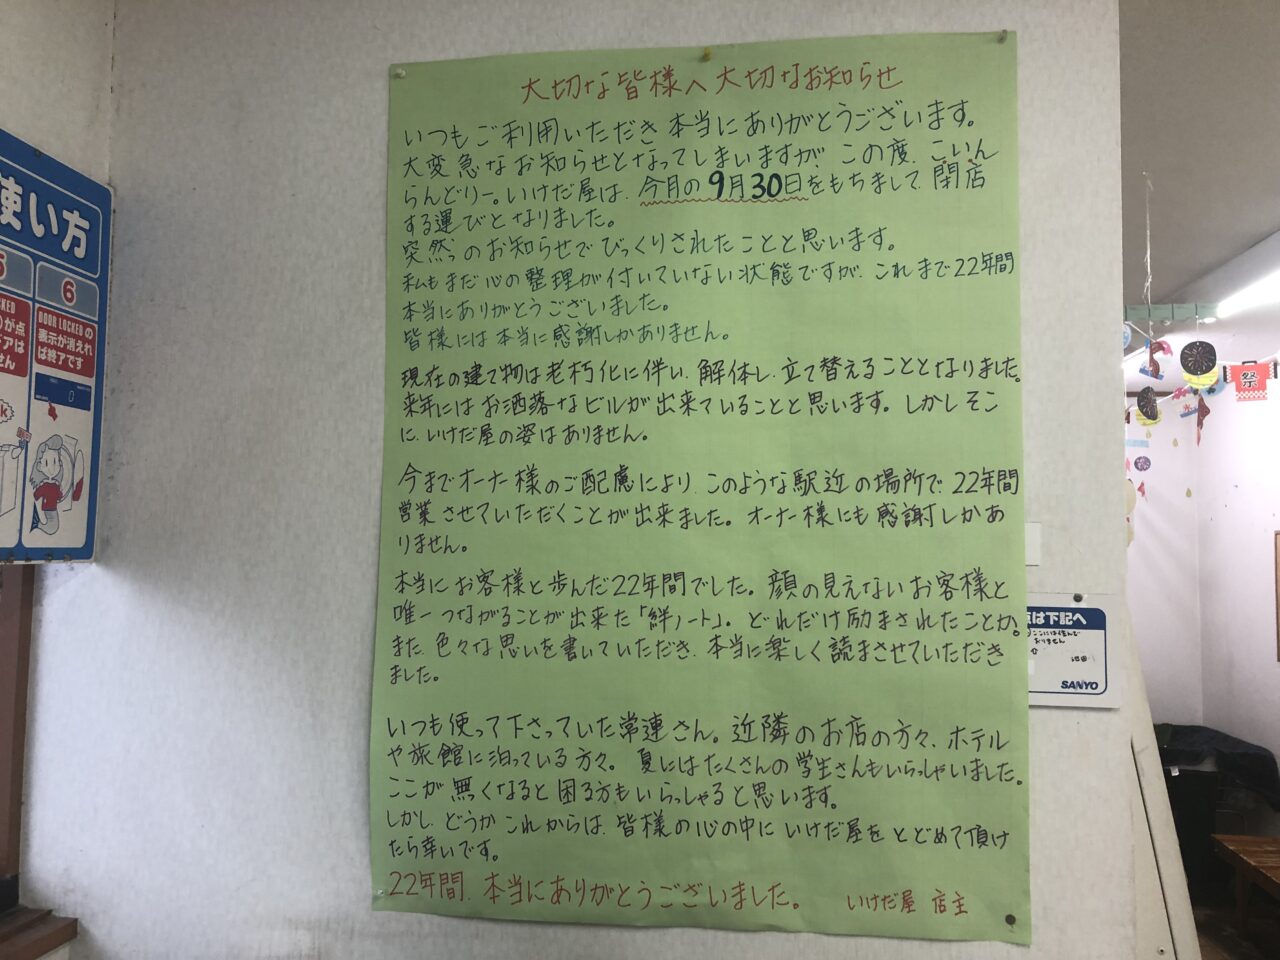 大切な皆様へ大切なお知らせ
いつもご利用いただき本当にありがとうございます。
大変急なお知らせとなってしまいますが、この度、こいん
らんどりー。いけだ屋は、今月の9月30日をもちまして、閉店
する運びとなりました。
突然のお知らせでびっくりされたことと思います。
私もまだ心の整理が付いていない状態ですが、これまで22年間
本当にありがとうございました。
皆様には本当に感謝しかありません。
現在の建て物は老朽化に伴い、解体し、立て替えることとなりました。
来年にはお洒落なビルが出来ていることと思います。しかしそこ
に、いけだ屋の姿はありません。
今までオーナー様のご配慮により、このような駅近の場所で、22年間
営業させていただくことが出来ました。オーナー様にも感謝しかあ
りません。
本当にお客様と歩んだ22年間でした。顔の見えないお客様と
唯一つながることが出来た「絆ノート」。どれだけ励まされたことか。
また、色々な思いを書いていただき、本当に楽しく読まさせていただき
ました。
いつも使って下さっていた常連さん。近隣のお店の方々、ホテル
や旅館に泊っている方々。夏にはたくさんの学生さんもいらっしゃいました。
ここが無くなると困る方もいらっしゃると思います。
しかし、どうかこれからは、皆様の心の中にいけだ屋をとどめて頂け
たら幸いです。
22年間、本当にありがとうございました。 いけだ屋 店主
使い方
5
6
DOOR LOCKEDの
表示が消えれ
ば終了です
が点
ドアは
せん
は下記へ
池田
SANYO
祭